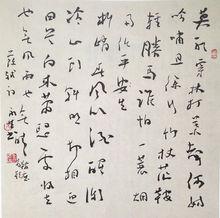 莫听穿林打叶声何妨
吟啸且徐行竹杖芒鞋
轻胜马谁怕一蓑烟
雨任平生
料峭春风吹酒醒微
冷山头斜照却相迎
回首向来萧瑟处归去
也无风雨也无晴
苏轼词